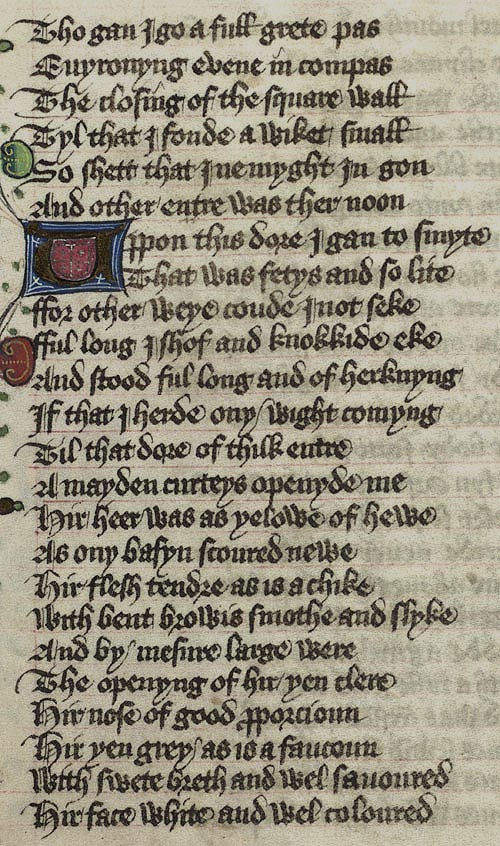 Tho gan I go a full grete pas
Euyronyng evene in compas
The closing of the square wall
Tyl that I fonde a wiket small
So shett that I ne myght In gon
And other entre was ther noon
Uppon this dore I gan to smyte
That was fetys and so lite
ffor other weye coude I not seke
fful long I shof and knokkide eke
And stood ful long and of herknyng
If that I herde ony wight comyng
Til that dore of thilk entre
A mayden curteys openyde me
Hir heer was as yelowe of hewe
As ony basyn scoured newe
Hir flesh tendre as is a chike
With bent browis smothe and slyke
And by mesure large were
The openyng of hir yen clere
Hir nose of good ꝓporcioun
Hir yen grey as is a faucoun
With swete breth and wel sauoured
Hir face white and wel coloured